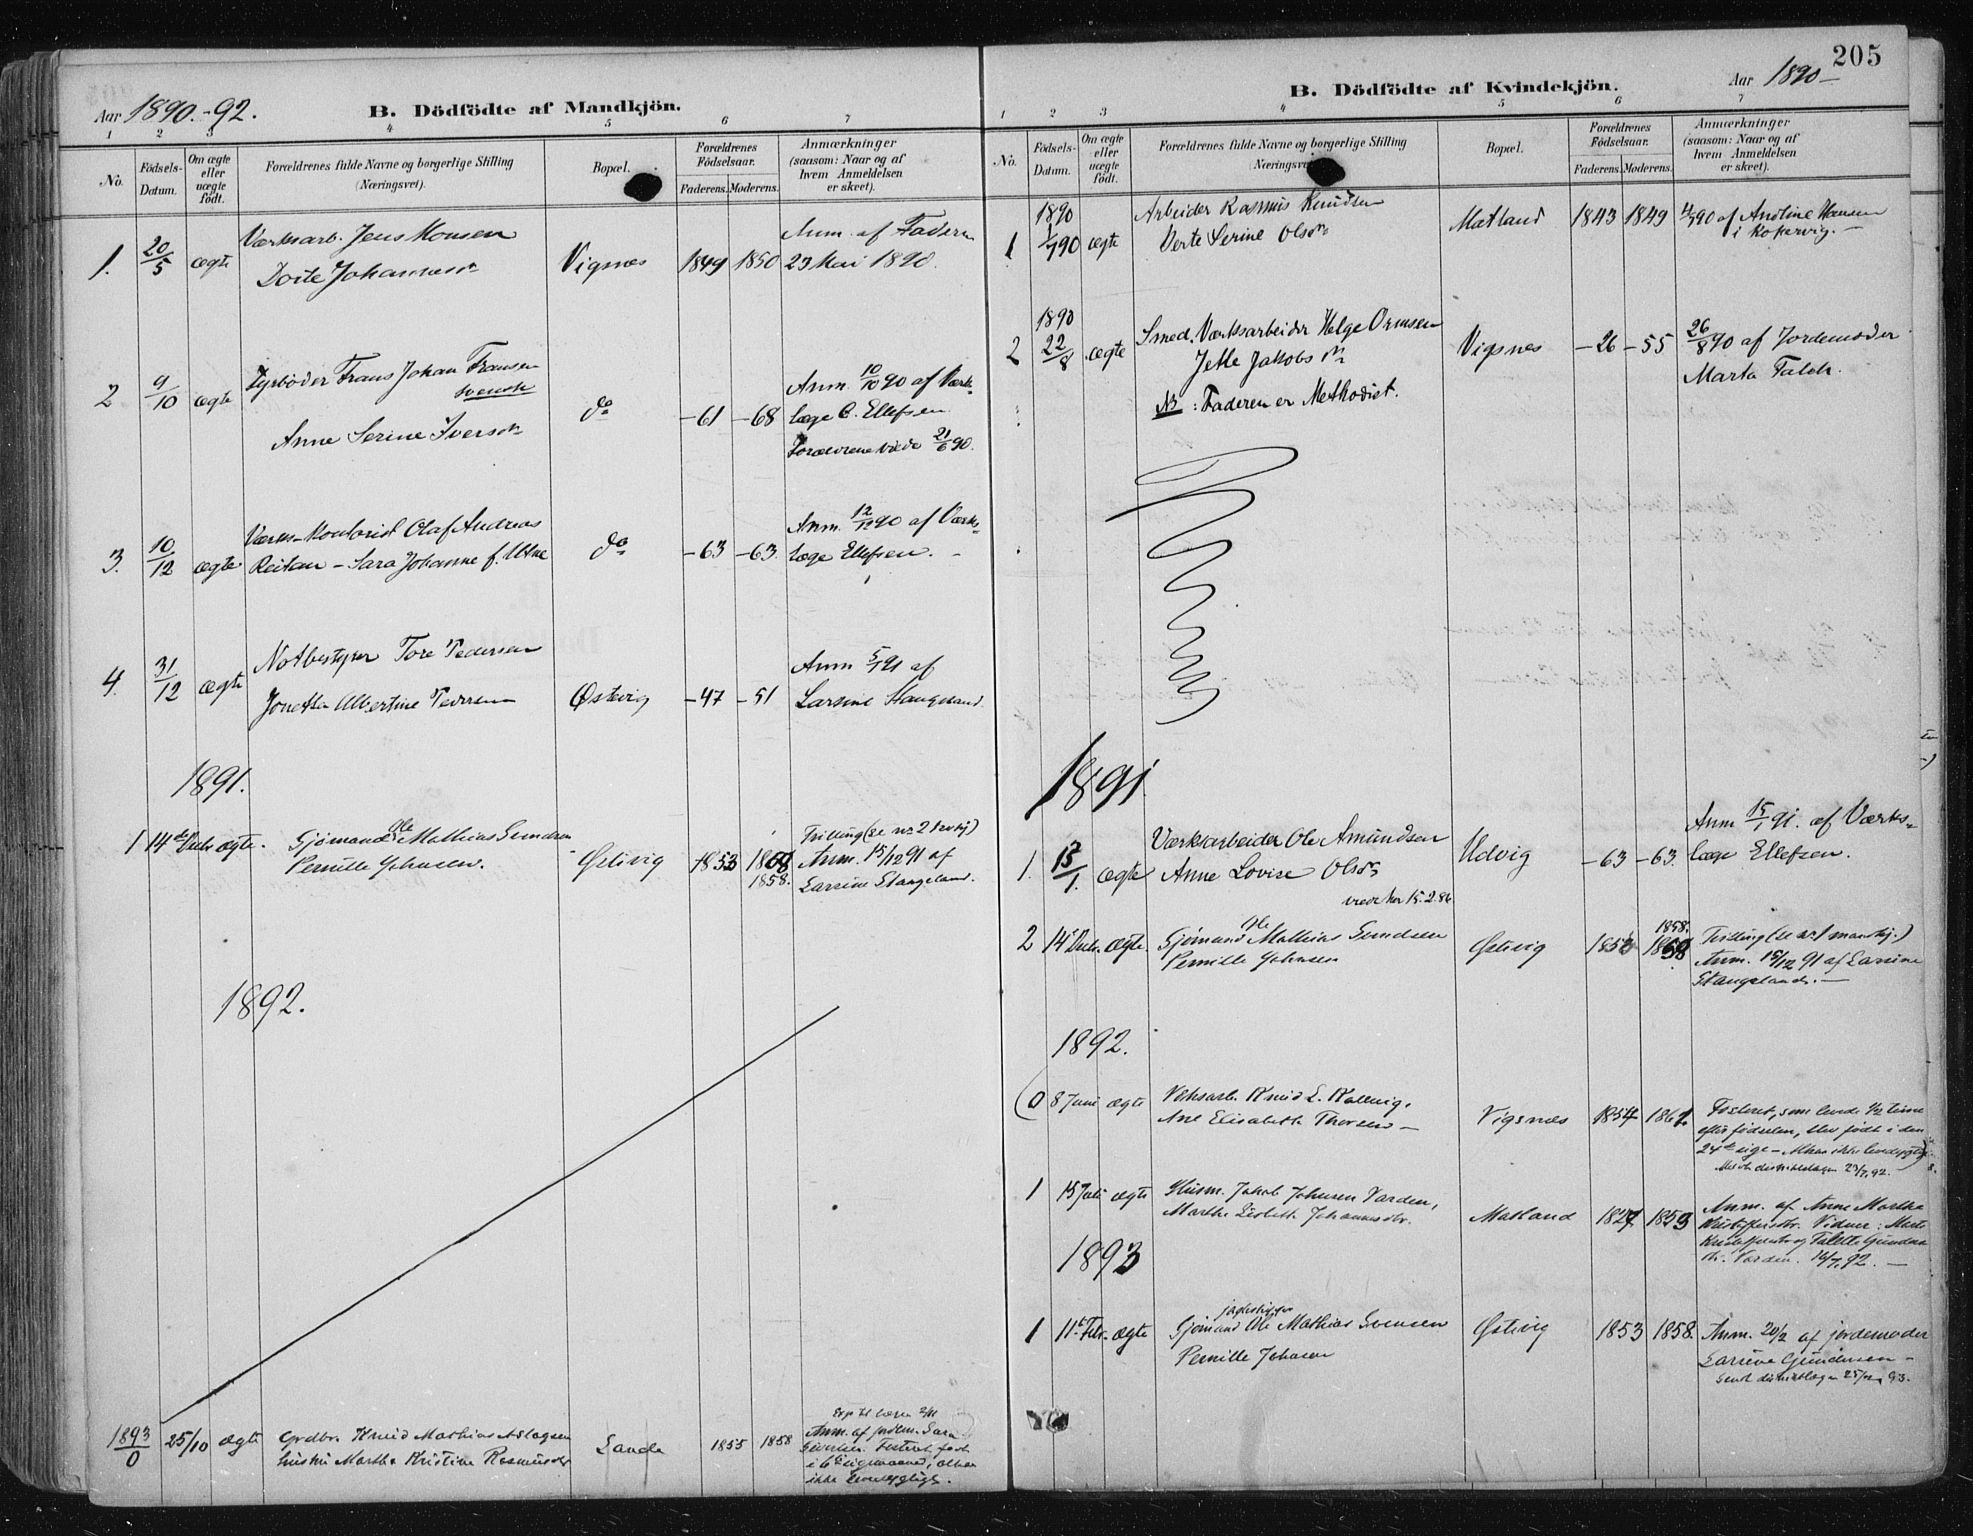 Aar 1890.-92.
B. Dödfödte af Mandkjön.
1 2 3 4 5 6 7
No.
Födsels-
Datum.
Om ægte
eller
uægte
födt.
Forældrenes fulde Navne og borgerlige Stilling
(Næringsvei).
Bopæl.
Forældrenes
Födselsaar.
Faderens. Moderens.
Anmærkninger
(saasom: Naar og af
hvem Anmeldelsen
er skeet).
1. 20/5 ægte Værksarb. Jens Monsen
Dorte Johannesdtr
Vigsnes 1849 1850
Anm. af Faderen
23 Mai 1890.
2 9/10 ægte Fyrbøder Frans Johan Fransen
svensk
Anne Serine Iversdtr
do -61 -68
Anm. 10/10 90 af Værk-
læge C. Ellefsen
Forældrene viede 21/6 90.
3. 10/12 ægte Værks-Kontorist Olaf Andreas
Reitan - Sara Johanne f. Utne
do -63 -63.
Anm. 12/12 90 af Værks-
læge Ellefsen. -
4. 31/12 ægte Notbestyrer Tore Pedersen
Albertine
Østvig -47 -51
Anm 5/1 91 af
Larsine Stangeland.
1891.
1 14de Decbr ægte. Sjømand Ole Mathias Svendsen
Pernille Johnsen.
Østvig 1853
1858.
Trilling (se nr 2 kvkj)
Anm. 15/12 91 af
Larsine Stangeland.
1892.
1893
0 25/10 ægte Grdbr. Knud Mathias Aslagsen
hustru Martha Kristine Rasmusdtr
Sande 1855 1858
Anm. af jordm. Sara
Fosteret født
i 6te
ikke levedygtigt.
205
Aar 1890-
B. Dödfödte af Kvindekjön.
1 2 3 4 5 6 7
No.
Födsels-
Datum.
Om ægte
eller
uægte
födt.
Forældrenes fulde Navne og borgerlige Stilling
(Næringsvei).
Bopæl.
Forældrenes
Födselsaar.
Faderens. Moderens.
Anmærkninger
(saasom: Naar og af
hvem Anmeldelsen
er skeet).
1890
1 1/7 90 ægte Arbeider Rasmus Knudsen
Berte Serine Olsdtr
Matland 1843 1849 4/7 90 af Andline Hansen
i Kopervig. -
1890
2 22/8 ægte Smed. Værksarbeider Helge Ormsen
Jette Jakobsdtr
NB: Faderen er Methodist.
Vigsnes -26 -55
26/8 90 af Jordemoder
Marta Falch.
1891
1. 13/1. ægte Værksarbeider Ole Amundsen
Anne Lovise Olsdtr
viede her 15.2.86
Udvig -63 -63.
Anm 15/1 91. af Værks-
læge Ellefsen.
2 14de Decbr. ægte. Sjømand Ole Mathias Svendsen
Pernille Johnsen
Østvig
1858.
Trilling (se nr. 1 mandkj.)
Anm. 15/12 91 af Larsine
Stangeland. -
1892.
0 8 Juni ægte Knud L. Kallevig.
Ane Elisabeth Thorsen -
Vigsnes 1854 1861.
Fosteret, som levede 1/2 time
efter fødselen, blev født i den
24de uge - Altsaa ikke levedygtig)
Meldt distriktslægen 23/7. 92.
1 15 Juli ægte Husm. Jakob Johnsen Varden,
Marthe Lisbeth Johannesdtr.
Matland 1827 1853
Anm. af Anne Marthe
Kristoffersdtr. Vidner: Marte
dtr. Varden. 16/7. 92. -
1893
1 11te Febr. ægte Sjømand Ole Mathias Svensen
Pernille Johnsen
Østvig 1853 1858.
Anm. 20/2 af jordemoder
Larsine Gundersen -
Sendt distriktslægen 25/2 93.